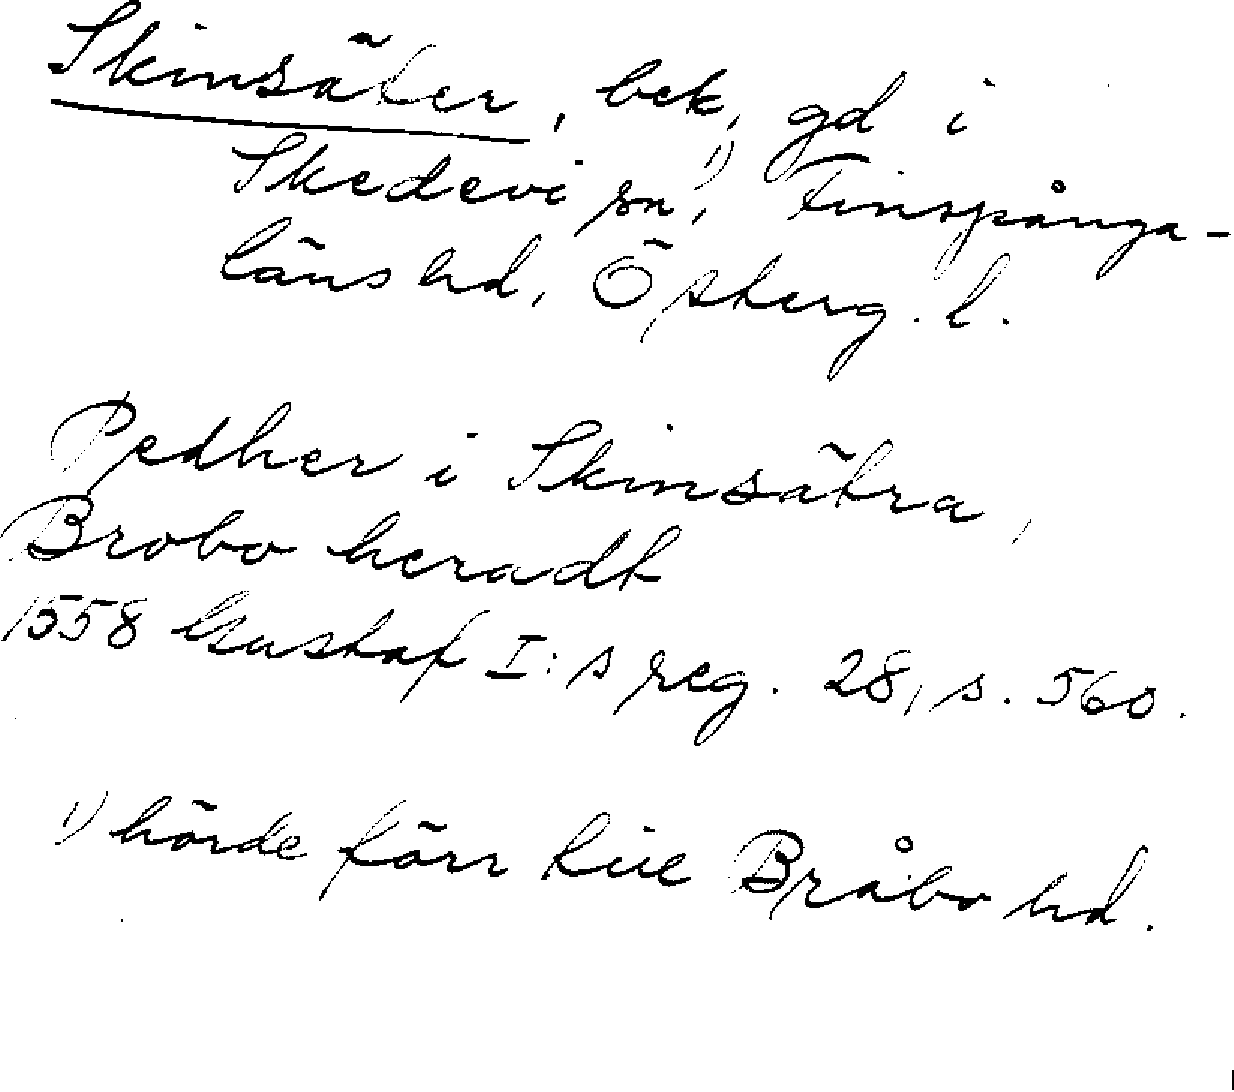 Skinsäter, bek, gd i
Skedevi sn¹⁾, Finspånga-
läns hd, Österg. l.
Pedher i Skinsätra,
Brobo heradt
1558 Gustaf I:s reg. 28, s. 560.
¹⁾ hörde förr till Bråbo hd.